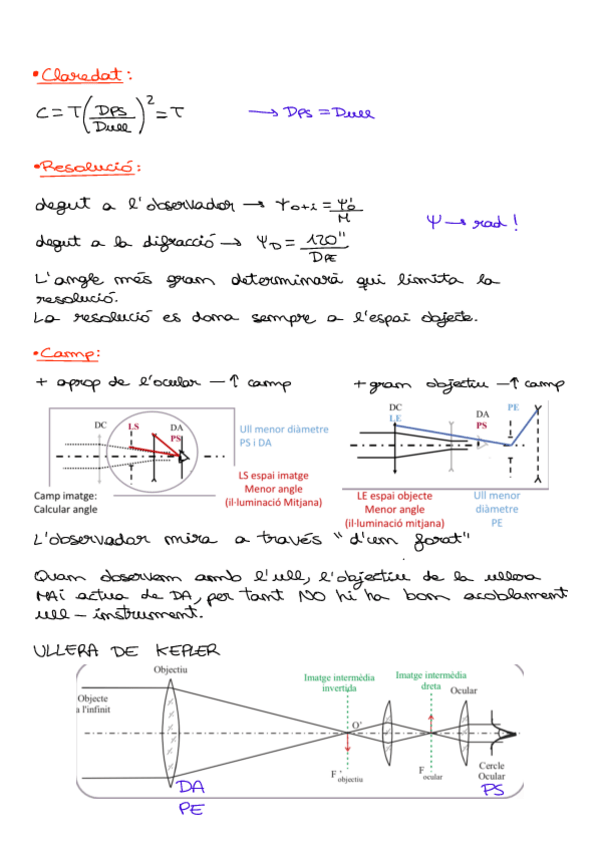 • Claredat:
C = T (DPS/Dull)² = T → DPS = Dull
• Resolució:
degut a l'observador → Ψo+i = Ψo'/M
Ψ → rad!
degut a la difracció → ΨD = 120"/DPE
L'angle més gran determinarà qui limita la
resolució.
La resolució es dona sempre a l'espai objecte.
• Camp:
+ aprop de l'ocular → ↑ camp
+ gran objectiu → ↑ camp
DC
LS
DA
PS
Ull menor diàmetre
PS i DA
LS espai imatge
Menor angle
(il·luminació Mitjana)
Camp imatge:
Calcular angle
DC
LE
DA
PS
PE
LE espai objecte
Menor angle
(il·luminació mitjana)
Ull menor
diàmetre
PE
L'observador mira a través "d'un forat"
Quan observem amb l'ull, l'objectiu de la ullera
MAi actua de DA, per tant NO hi ha bom acoblament
ull - instrument.
ULLERA DE KEPLER
Objectiu
Objecte
a l'infinit
Imatge intermèdia
invertida
Imatge intermèdia
dreta
Ocular
O'
F'objectiu
Focular
Cercle
Ocular
DA
PE
PS